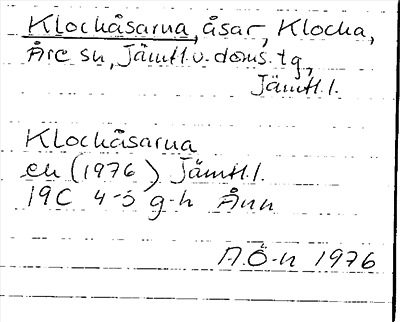 Klockåsarna, åsar, Klocka,
Åre sn, Jämtl. v. doms. tg,
Jämtl. l.
Klockåsarna
ek (1976) Jämtl. l.
19C 4-5 g-h Ånn
A.Ö-n 1976